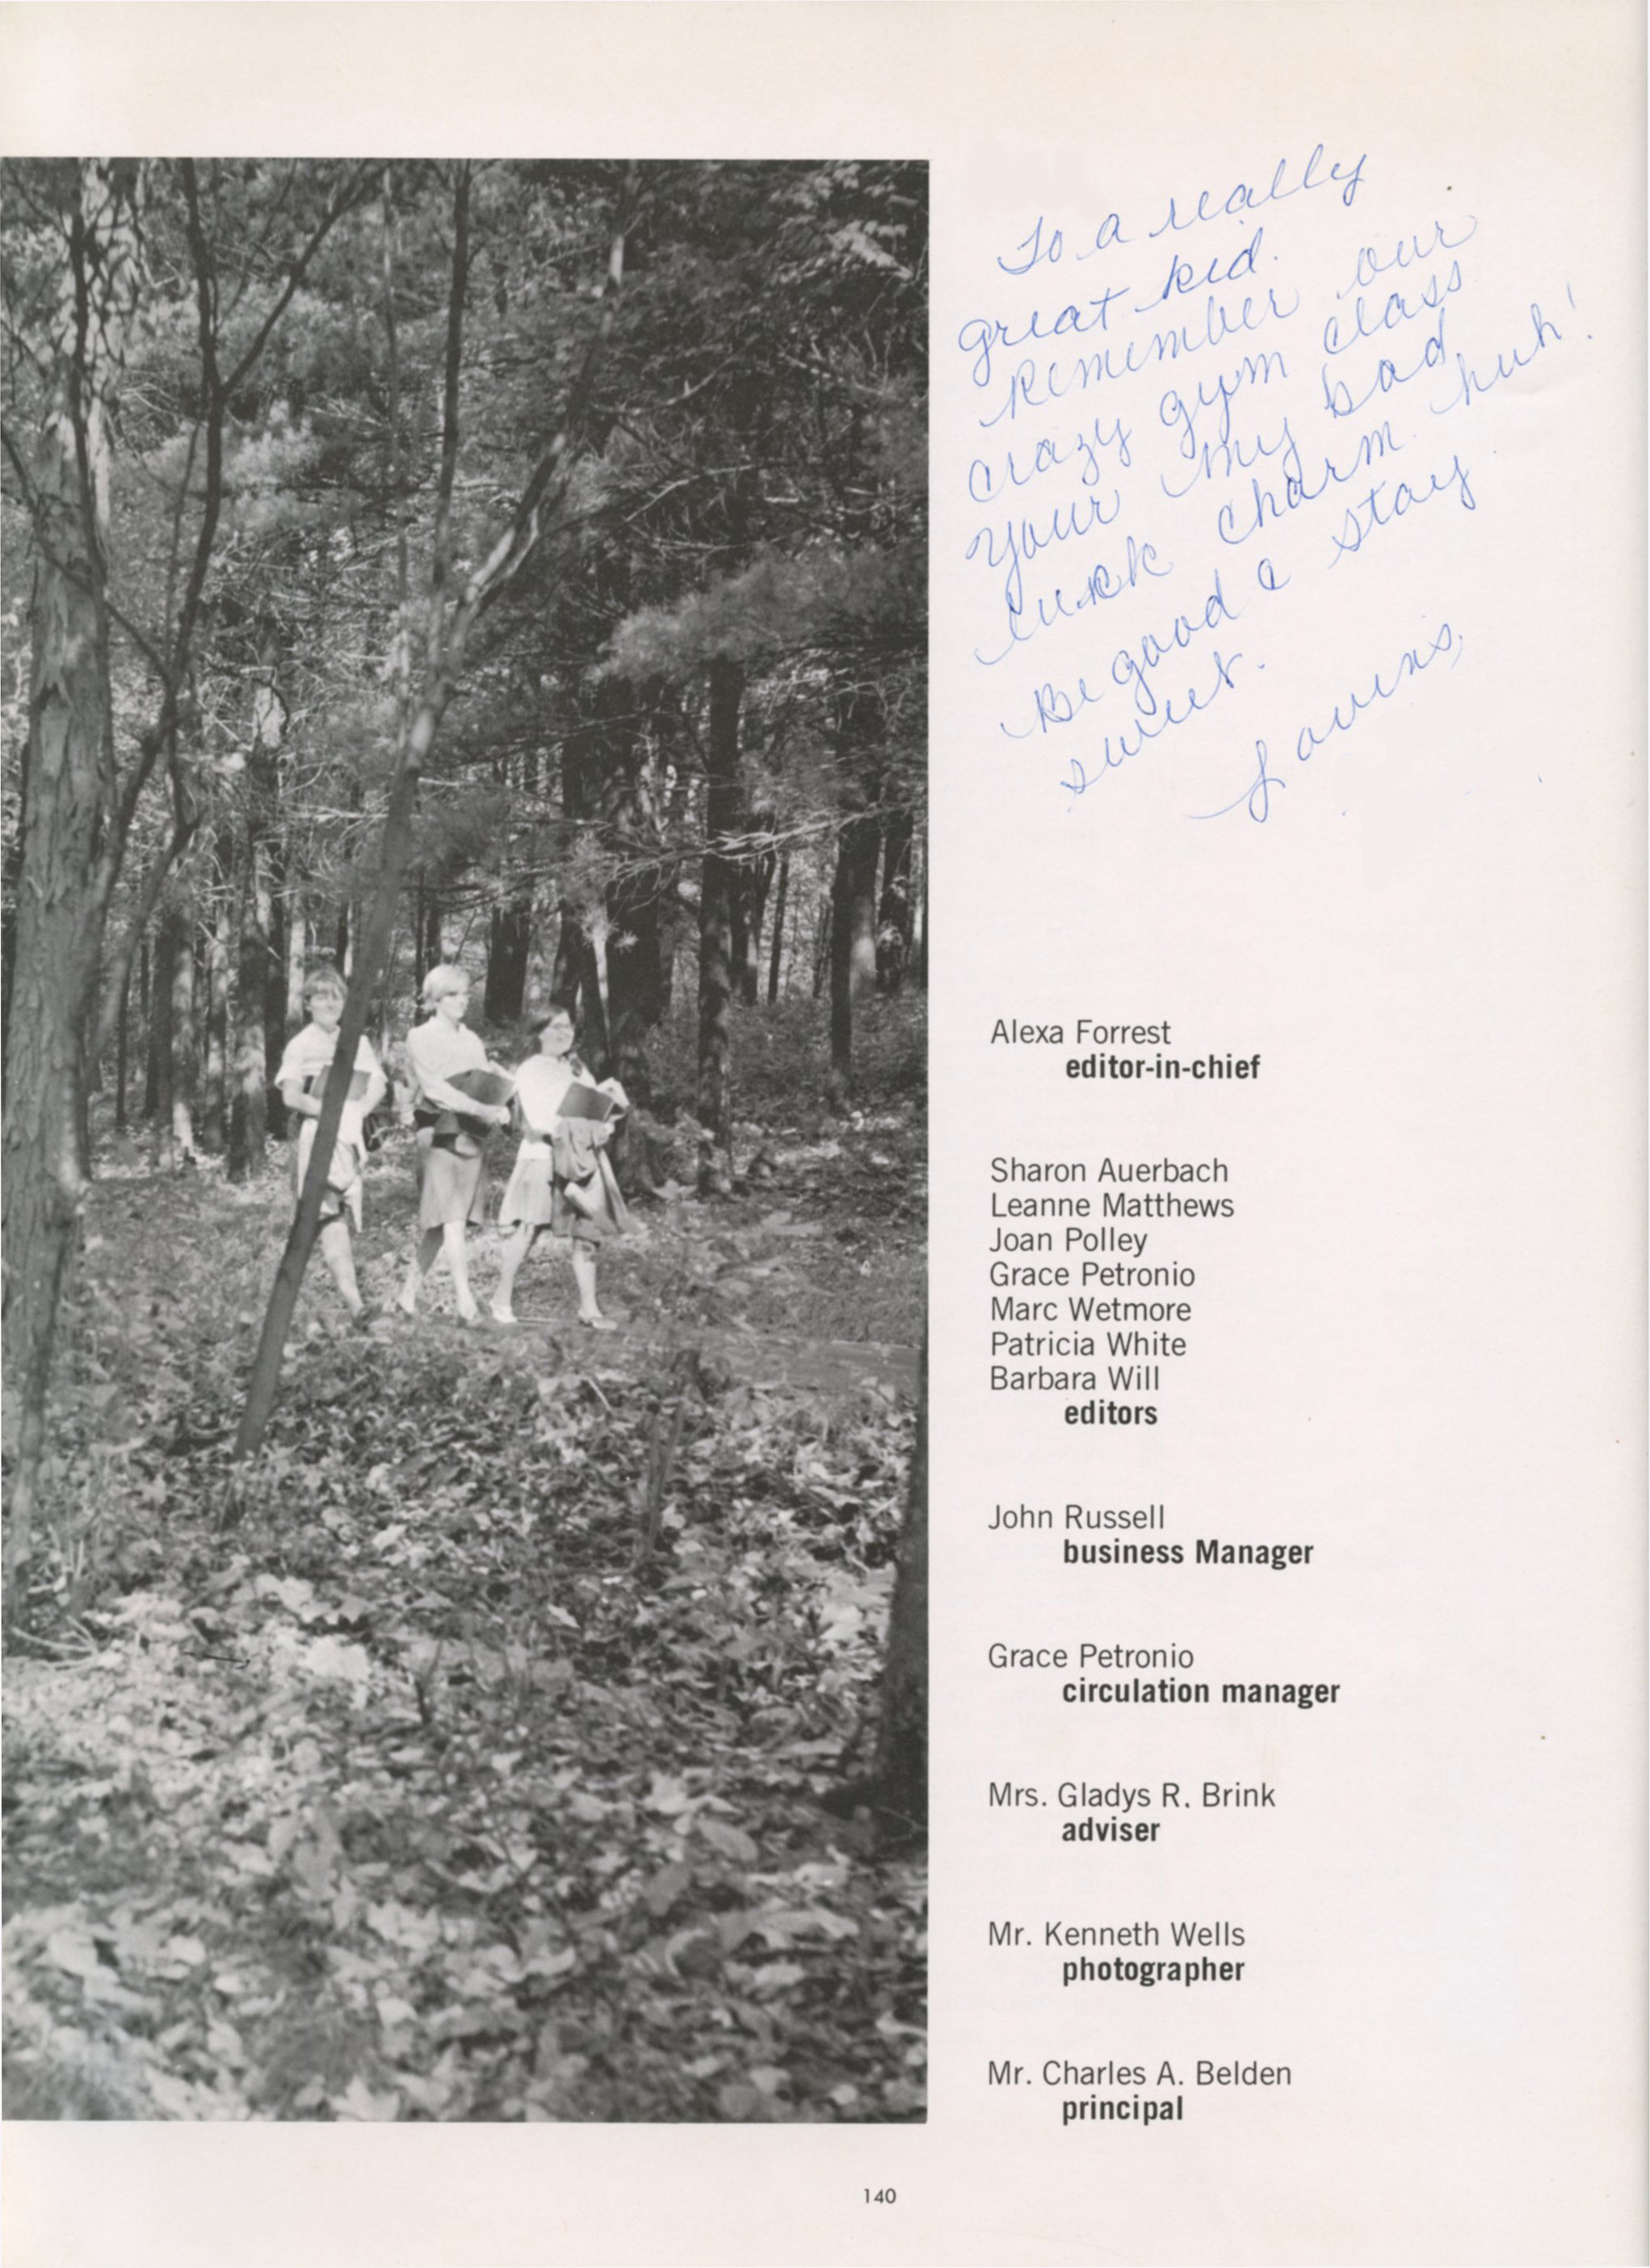 To a really
great kid.
Remember our
crazy gym class
your my bad
luck charm huh!
Be good & stay
sweet.
Alexa Forrest
editor-in-chief
Sharon Auerbach
Leanne Matthews
Joan Polley
Grace Petronio
Marc Wetmore
Patricia White
Barbara Will
editors
John Russell
business Manager
Grace Petronio
circulation manager
Mrs. Gladys R. Brink
adviser
Mr. Kenneth Wells
photographer
Mr. Charles A. Belden
principal
140